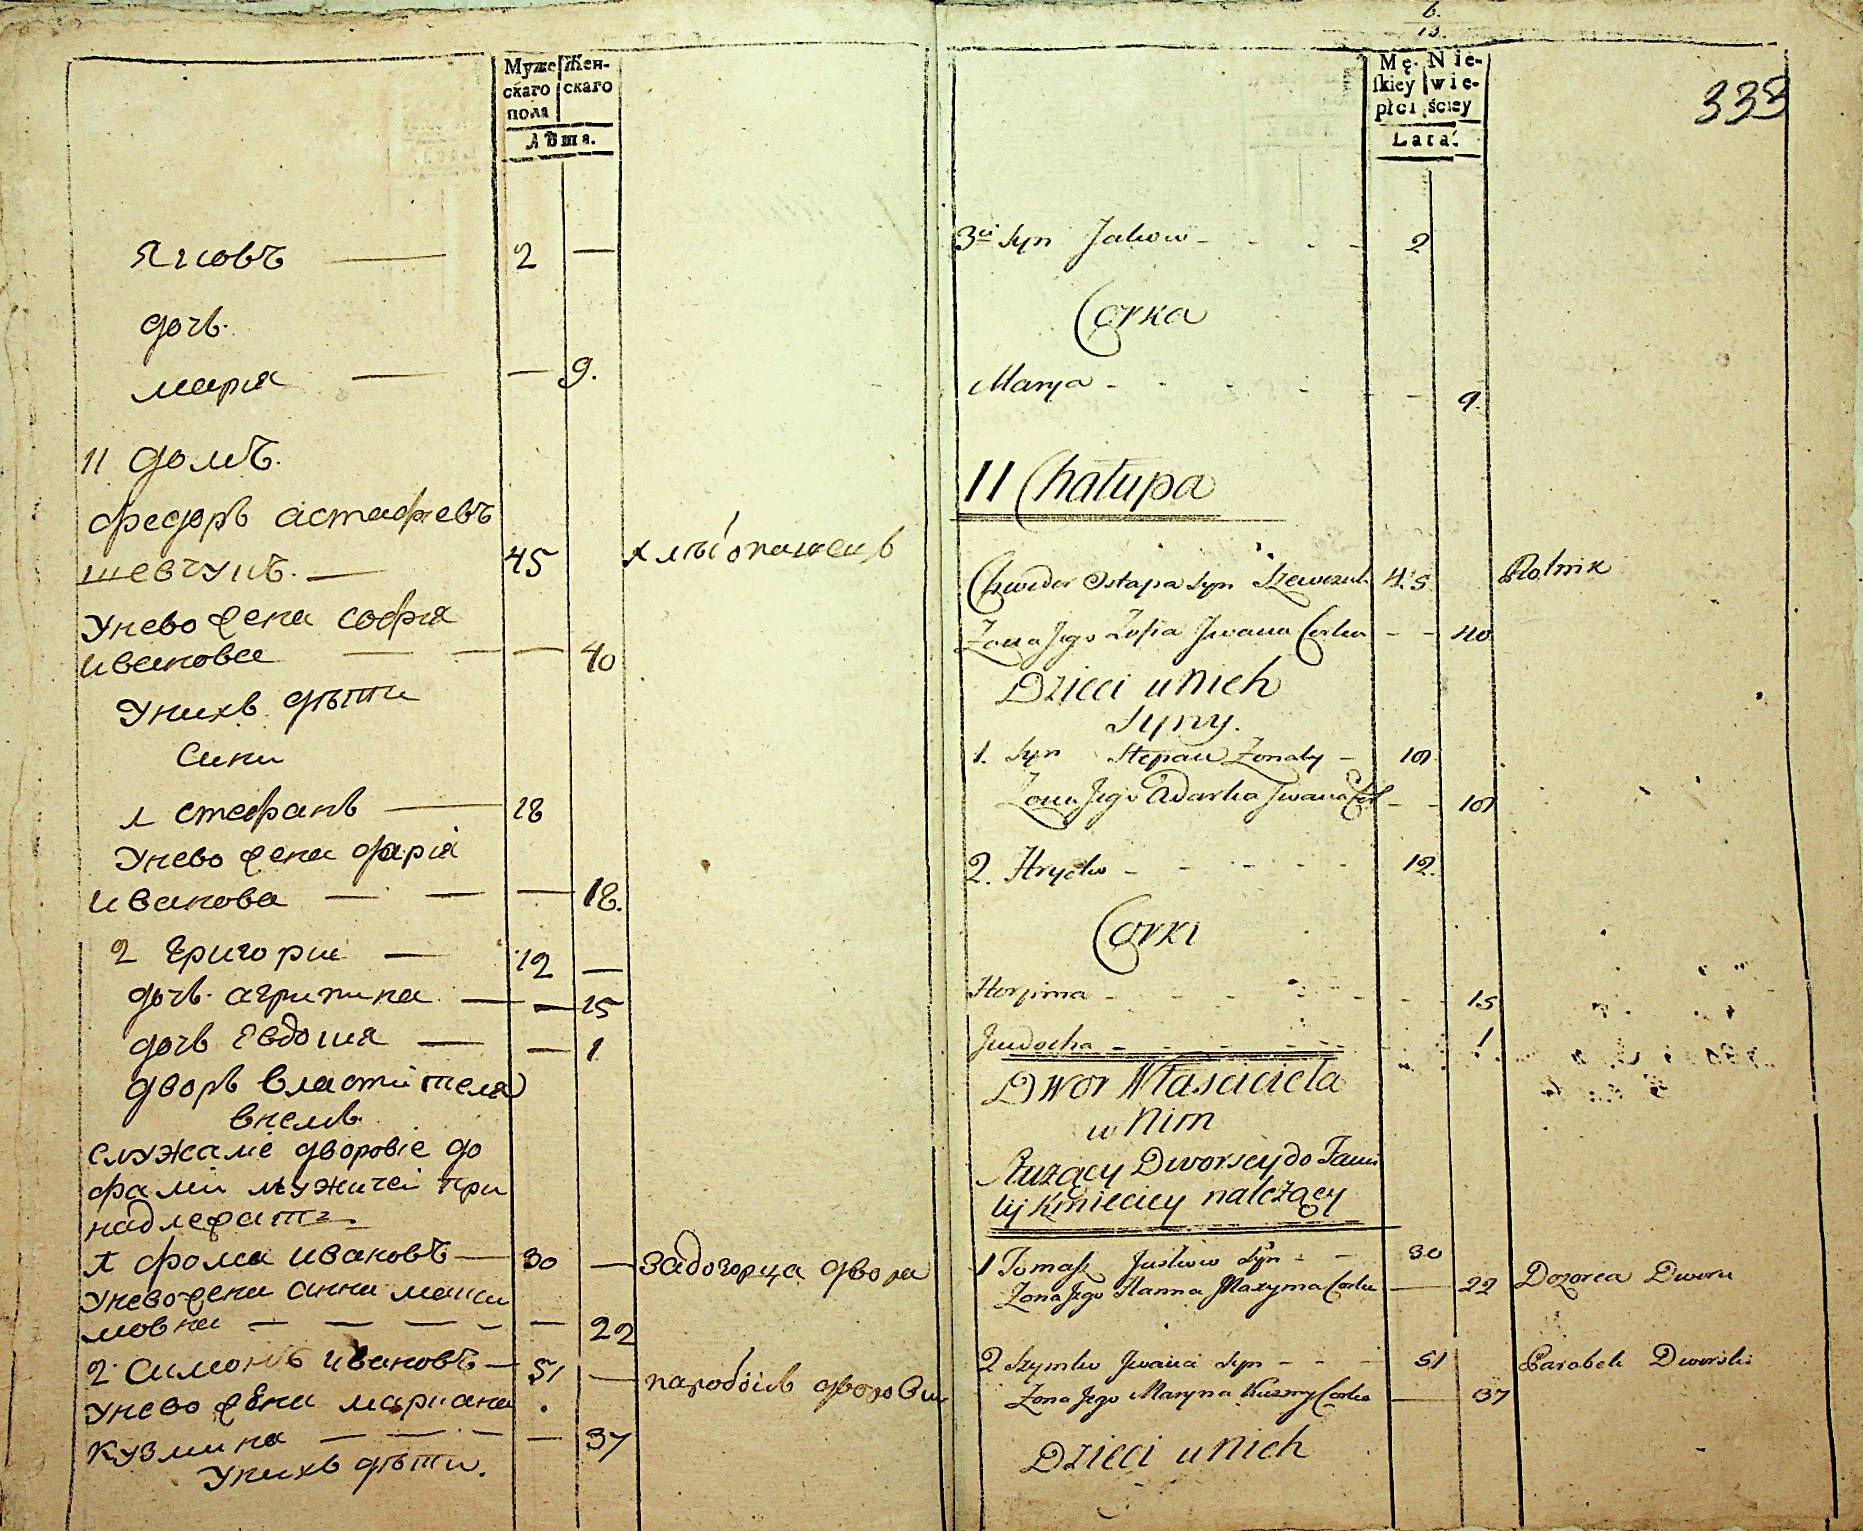 Муже Жен-
скаго скаго
пола
лѣта.
Яковъ — 2 —
дочь.
мария — — 9.
11 домъ.
федоръ астафьевъ
шевчукъ. — 45
Унево жена софия
иванова — — — 40
Унихъ дѣти
сини
1 стефанъ — 18
Унево жена дария
иванова — — — 18.
2 григории — 12 —
дочь. агрипина — — 15
дочь Евдокия — — 1
дворъ властителя
внемъ.
служаме дворовіе до
фамиі мужичеі при
надлежатъ.
1 фома ивановъ — 30 — задозорца двора
Унево жена анна макси
мовна — — — — — 22
2. симонъ ивановъ — 51 — паробокъ дворовы
унево жена мариана
кузмина — — — — 37
Унихъ дѣти.
6.
13.
333
Mę- Nie-
ſkiey wie-
płci ściey
Lata.
3ci Syn Jakow - - - - 2
Corka
Marya - - - - - 9.
11 Chałupa
Chwedor Ostapa Syn Szewczuk 45 Rolnik
Żona Jego Zofia Jwana Corka - - 40
Dzieci u Nich
Syny.
1. Syn Stepan Żonaty - 18
Żona Jego Adarka Jwana Cor - - 18
2. Hryćko - - - - - 12.
Corki
Horpina - - - - - - - 15
Jewdocha - - - - - - 1
Dwor Właściciela
w Nim
Słuzący Dworscy do Fami
lij Kmieciey nalezący
1 Tomaſz Jwanow Syn - - 30
Żona Jego Hanna Maxyma Corka — 22 Dozorca Dworu
2 Szymko Jwana Syn - - - 51 Parobek Dworski
Żona Jego Maryna Kuzmy Corka — 37
Dzieci u Nich